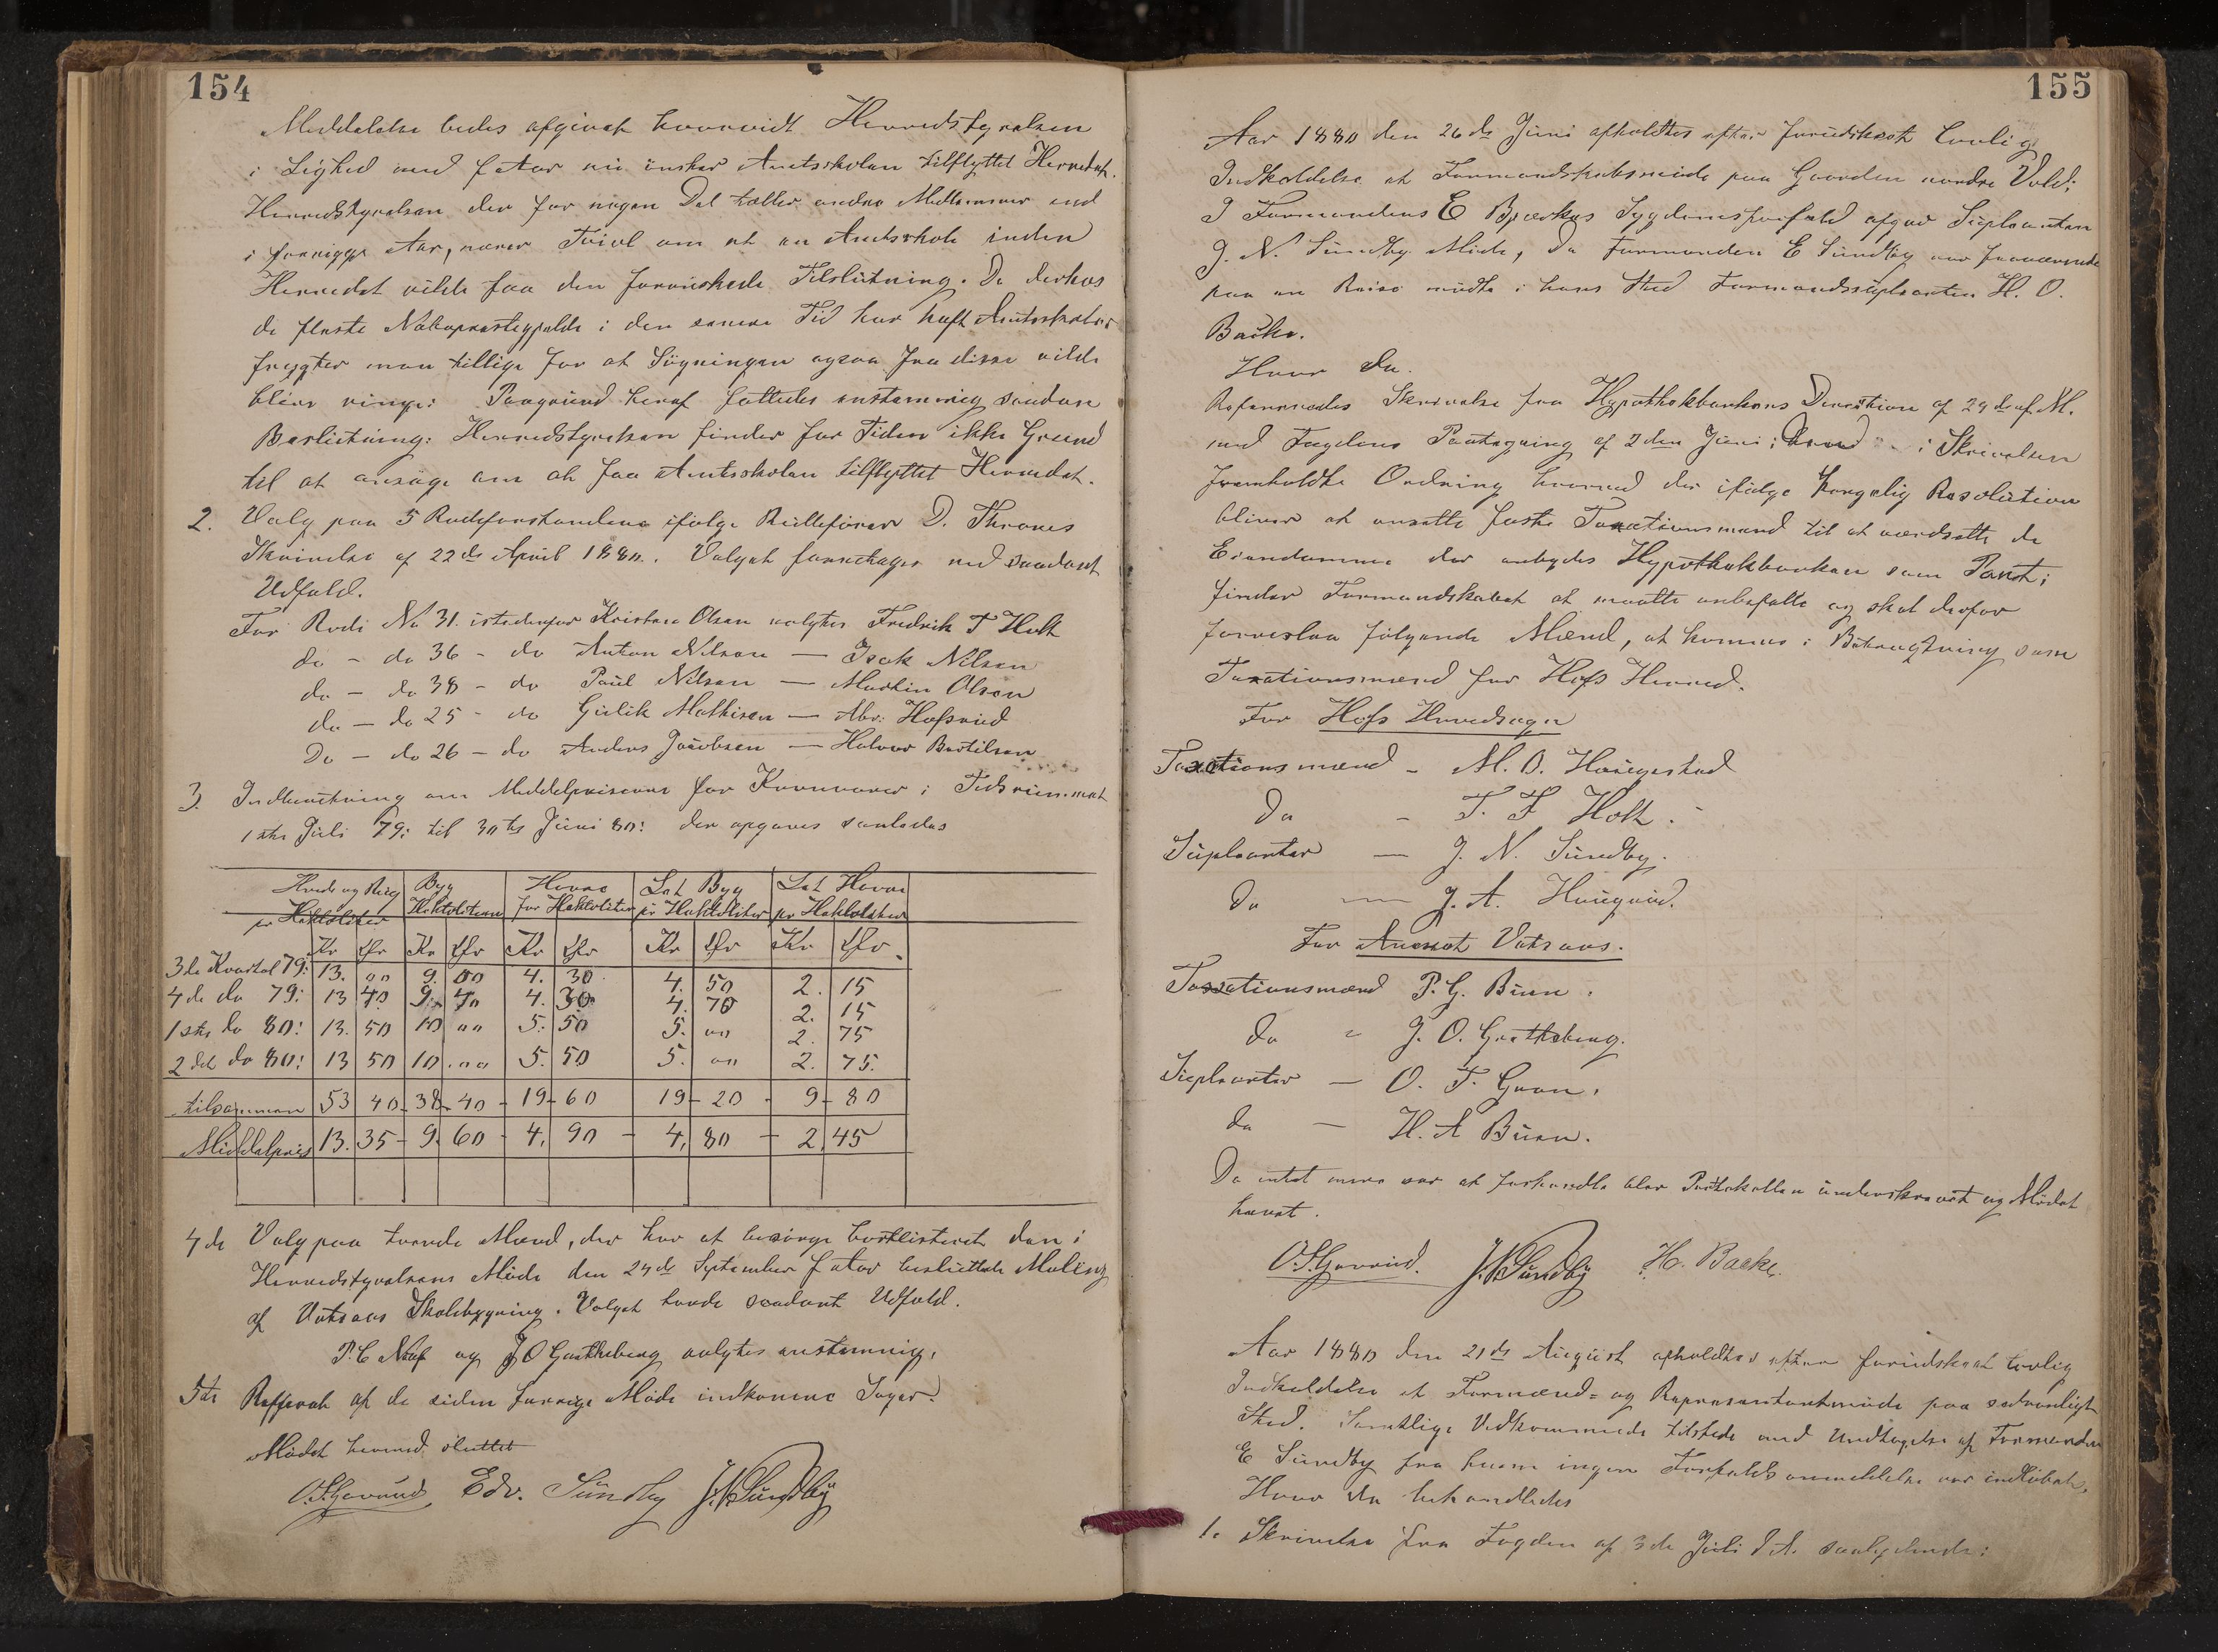 154
Meddelelse bedes afgivet hvorvidt Herredstyrelsen
i Lighed med f Aar nu ønsker Amtsskolen tilflyttet Herredet.
Herredstyrelsen der for nogen Del tæller andre Medlemmer end
i forrige Aar, nærer Tvivl om at en Amtsskole inden
Herredet vilde faa den fornødne Tilslutning. Da derhos
de fleste Nabopræstegjelde i den senere Tid har haft Amtsskoler
frygter man tillige for at Søgningen ogsaa fra disse vilde
blive ringe: Paagrund heraf fattedes enstemmig saadan
Beslutning: Herredstyrelsen finder for Tiden ikke Grund
til at ansøge om at faa Amtsskolen tilflyttet Herredet.
2. Valg paa 5 Rodeforstandere ifølge Rullefører D. Thrones
Skrivelse af 22de April 1880. Valget foretages med saadant
Udfald.
For Rode No 31. istedenfor Kristen Olsen valgtes Fredrik T Holt
do - do 36 - do Anton Nilsen — Isak Nilsen
do - do 38 - do Paul Nilsen — Martin Olsen
do - do 25 - do Gulik Mathisen — Abr: Hafsrud
Do - do 26 - do Anders Jacobsen — Halvor Bertilsen
3. Indberetning om Middelpriserne for Kornvarer i Tidsrummet
1ste Juli 79: til 30te Juni 80: der opgives saaledes
Hvede og Rug Byg Havre Let Byg Let Havre
pr Hektoliter Hektoliter for Hektoliter pr Hektoliter pr Hektoliter
Kr Ør Kr Ør Kr Ør Kr Ør Kr Ør
3de Kvartal 79: 13. 00 9. 00 4. 30 4. 50 2. 15
4de do 79: 13 40. 9. 40 4. 30 4. 70 2. 15
1ste do 80: 13. 50 10 00 5. 50 5. 00 2. 75
2det do 80: 13 50 10. 00 5. 50 5. 00 2. 75.
tilsammen 53 40 - 38. 40 - 19 - 60 19 - 20 - 9 - 80
Middelpris 13. 35 - 9. 60 - 4. 90 - 4. 80 - 2. 45
4de Valg paa tvende Mænd, der har at besørge bortlisteret den i
Herredstyrelsens Møde den 24de September f Aar besluttede Maling
af Vatsaas Skolebygning. Valget havde saadant Udfald.
P. C Næf og J O Grathsberg valgtes enstemmig.
5te Refferat af de siden forrige Møde indkomne Sager.
Mødet hermed sluttet
Edv. Sundby J. N Sundby
155
Aar 1880 den 26de Juni afholdtes efter forudskeet lovlig
Indkaldelse et Formandskabsmøde paa Gaarden nordre Vold;
I Formandens E Bjerkes Sygdomsforfald afgav Suppleanten
J. N. Sundby Møde, Da Formanden E Sundby var fraværende
paa en Reise mødte i hans Sted Formandssupleanten H. O.
Backe.
Hvor da.
Refereredes Skrivelse fra Hypothekbankens Direktion af 29de f. M.
med Fogdens Paategning af 2den Juni: i Skrivelsen
fremholdte Ordning hvorved der ifølge kongelig Resolution
bliver at ansætte faste Taxationsmænd til at værdsætte de
Eiendomme der anbydes Hypothekbanken som Pant;
finder Formandskabet at maatte anbefalle og skal derfor
foreslaa følgende Mænd, at komme i Betragtning som
Taxationsmænd for Hofs Herred.
For Hofs Hovedsogn
Taxationsmænd - M. O. Haugestad
Do - T. F Holt.
Supleanter — J. N. Sundby.
Do — J. A. Haugrud.
For Annexet Vatsaas.
Taxationsmænd P. G. Buen.
Do - J. O. Grathsberg.
Supleanter — O. T. Gran.
do — H. A Buen.
Da intet mere var at forhandle blev Protokollen underskrevet og Mødet
hævet.
J. N Sundby H. Backe.
Aar 1880 den 21de August afholdtes efter forudskeet lovlig
Indkaldelse et Formænd= og Representantmøde paa sedvanligt
Sted. Samtlige Vedkommende tilstede med Undtagelse af Formanden
E Sundby fra hvem ingen Forfaldsanmeldelse var indløbet.
Hvor da behandledes
1. Skrivelse fra Fogden af 3de Juli d A. saalydende: